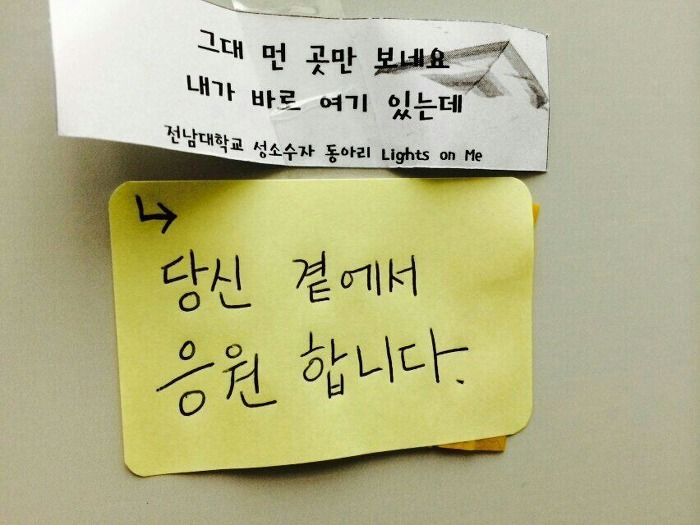 그대 먼 곳만 보네요
내가 바로 여기 있는데
전남대학교 성소수자 동아리 Lights on Me
당신 곁에서
응원 합니다.